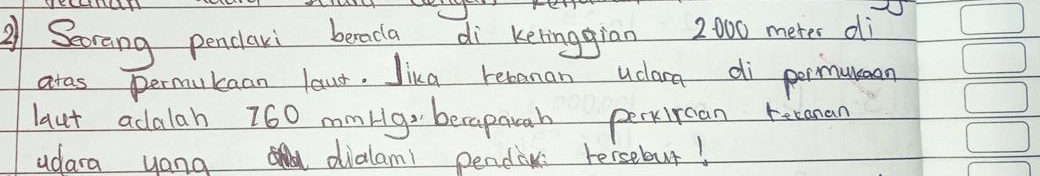 2) Seorang pendaki berada di ketinggian 2.000 meter di
atas permukaan laut. Jika tekanan udara di permukaan
laut adalah 760 mmHg, berapakah perkiraan tekanan
udara yang dialami pendaki tersebut!